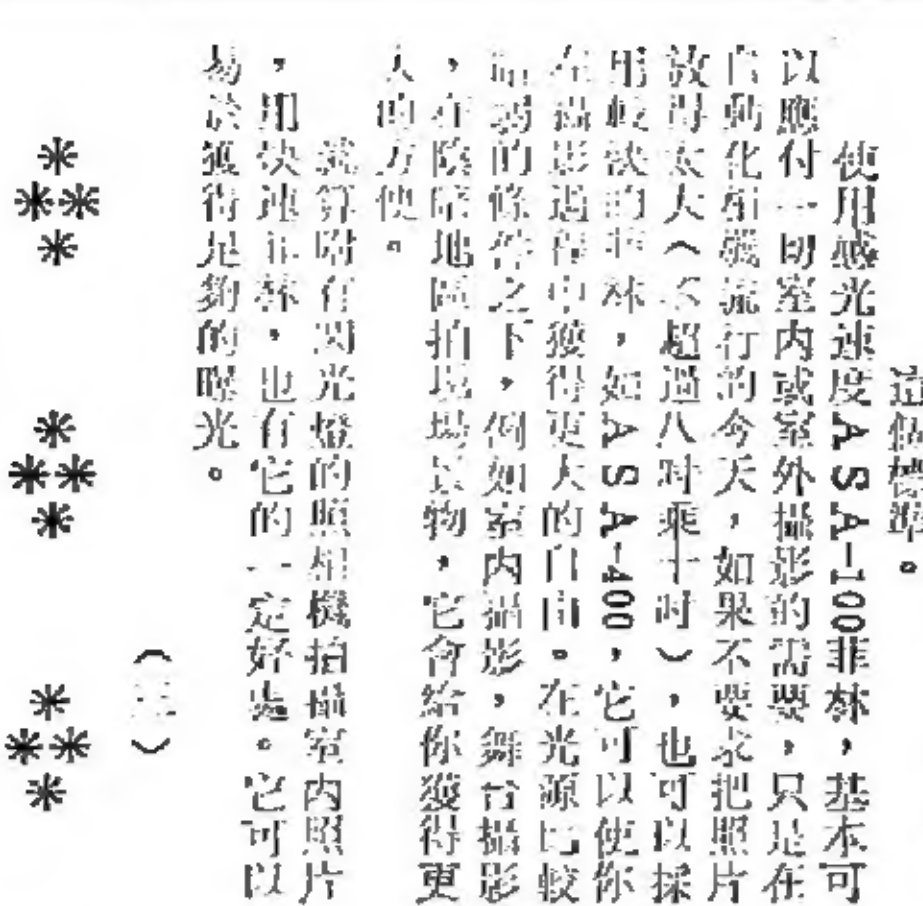 這個標準。
使用感光速度ASA-100菲林，基本可
以應付一切室內或室外攝影的需要，只是在
自動化相機流行的今天，如果不要求把照片
放得太大（不超過八吋乘十吋），也可以採
用較快的菲林，如ASA-400，它可以使你
在攝影過程中獲得更大的自由。在光源比較
暗弱的條件之下，例如室內攝影，舞台攝影
，在陰暗地區拍現場景物，它會給你獲得更
大的方便。
就算附有閃光燈的照相機拍攝室內照片
，用快速菲林，也有它的一定好處。它可以
易於獲得足夠的曝光。
（二）
＊＊＊＊　＊＊＊＊　＊＊＊＊